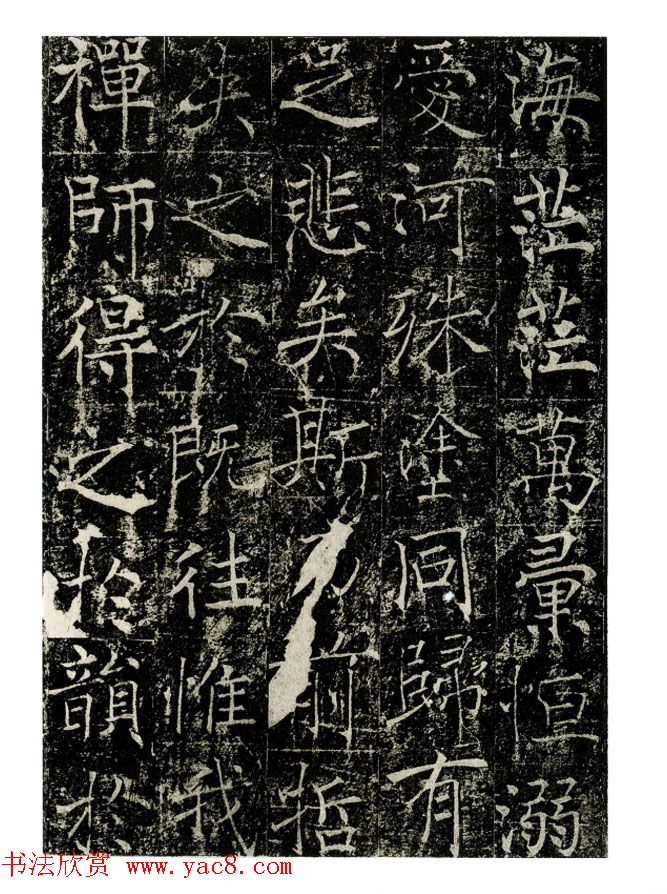 海茫茫萬彙恒溺
愛河殊塗同歸有
足悲矣斯乃前哲
失之於既往惟我
禪師得之於韻於
书法欣赏 www.yac8.com